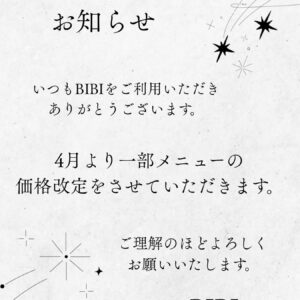 お知らせ
いつもBIBIをご利用いただき
ありがとうございます。
4月より一部メニューの
価格改定をさせていただきます。
ご理解のほどよろしく
お願いいたします。